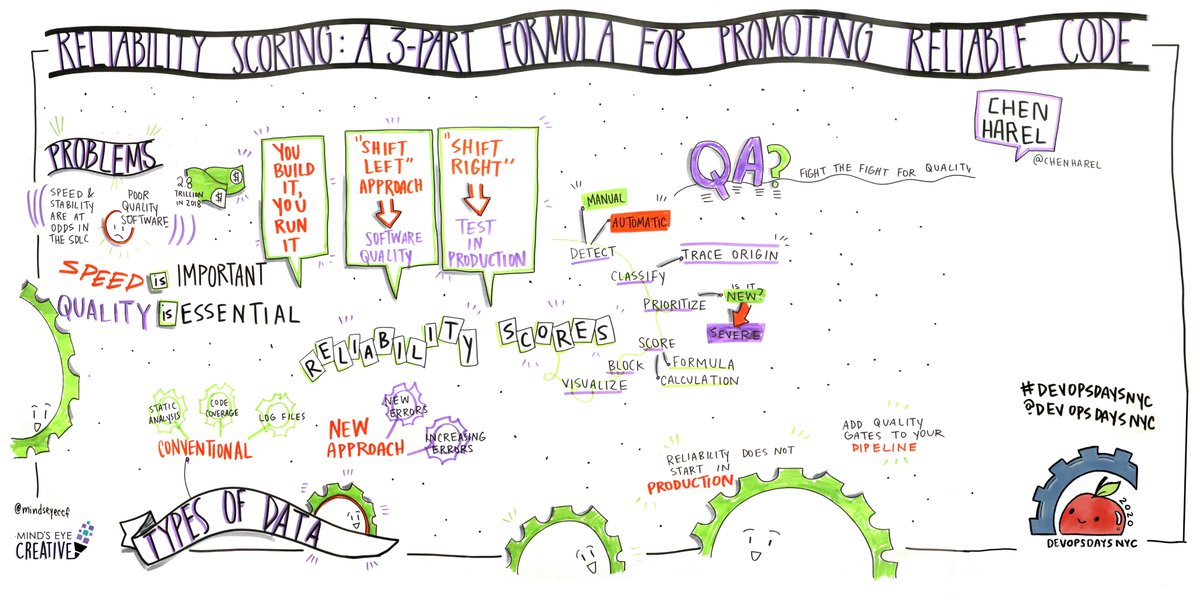 RELIABILITY SCORING: A 3-PART FORMULA FOR PROMOTING RELIABLE CODE
CHEN
HAREL
@CHENHAREL
PROBLEMS
SPEED &
STABILITY
ARE AT
ODDS IN
THE SDLC
POOR
QUALITY
SOFTWARE
2.8
TRILLION
IN 2018
$
$
SPEED is IMPORTANT
QUALITY is ESSENTIAL
YOU
BUILD
IT,
YOU
RUN
IT
"SHIFT
LEFT"
APPROACH
SOFTWARE
QUALITY
"SHIFT
RIGHT"
TEST
IN
PRODUCTION
QA?
FIGHT THE FIGHT FOR QUALITY
RELIABILITY SCORES
MANUAL
AUTOMATIC
DETECT
CLASSIFY
TRACE ORIGIN
PRIORITIZE
IS IT
NEW?
SEVERE
SCORE
FORMULA
CALCULATION
BLOCK
VISUALIZE
STATIC
ANALYSIS
CODE
COVERAGE
LOG FILES
CONVENTIONAL
NEW
APPROACH
NEW
ERRORS
INCREASING
ERRORS
TYPES OF DATA
RELIABILITY DOES NOT
START IN
PRODUCTION
ADD QUALITY
GATES TO YOUR
PIPELINE
#DEVOPSDAYSNYC
@DEVOPSDAYSNYC
2020
DEVOPSDAYS NYC
@mindseyeccf
MIND'S EYE
CREATIVE